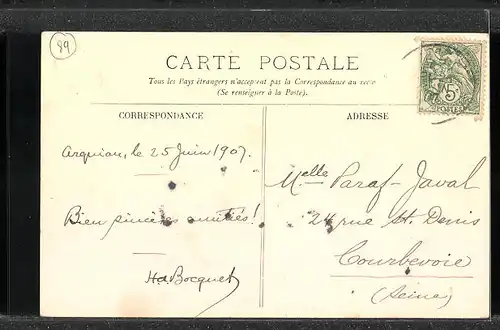 89
CARTE POSTALE
Tous les Pays étrangers n'acceptent pas la Correspondance au recto
(Se renseigner à la Poste).
CORRESPONDANCE
ADRESSE
5c
POSTES
Arquian, le 25 Juin 1907.
Bien sincères amitiés!
Hd. Bocquet
Melle Paraf-Javal
24 rue St. Denis
Courbevoie
(Seine)